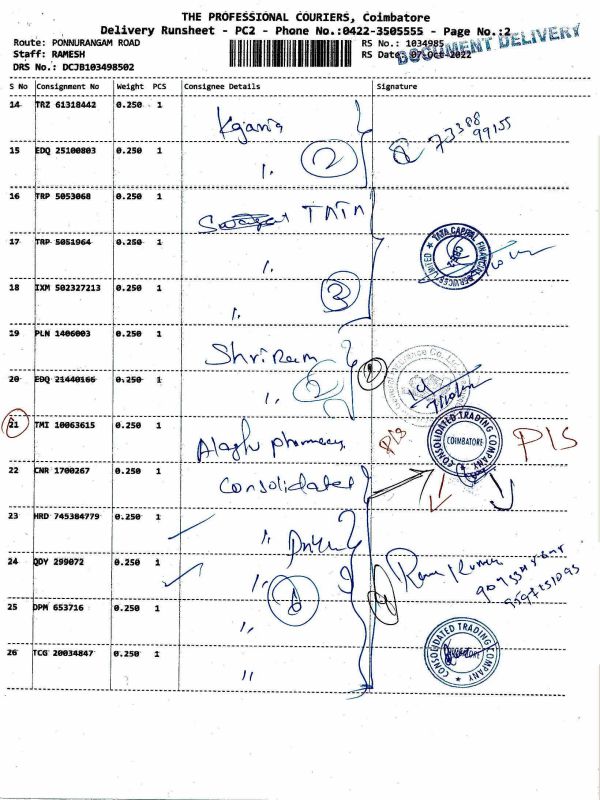 THE PROFESSIONAL COURIERS, Coimbatore
Delivery Runsheet - PC2 - Phone No.:0422-3505555 - Page No.:2
DOCUMENT DELIVERY
Route: PONNURANGAM ROAD RS No.: 1034985
Staff: RAMESH RS Date: 07-Oct-2022
DRS No.: DCJB103498502
S No Consignment No Weight PCS Consignee Details Signature
14 TRZ 61318442 0.250 1
73388
99155
15 EDQ 25100803 0.250 1 ". 2
16 TRP 5053068 0.250 1 TATA
17 TRP 5051964 0.250 1 ".
TATA CAPITAL FINANCIAL SERVICES LIMITED
18 IXM 502327213 0.250 1 ". 3
19 PLN 1406003 0.250 1 Shriram
20 EDQ 21440166 0.250 1 ". 2
21 TMI 10063615 0.250 1 pharmacy
P/S
CONSOLIDATED TRADING COMPANY COIMBATORE
P/S
22 CNR 1700267 0.250 1 Consolidated
23 HRD 745384779 0.250 1 ".
24 QDY 299072 0.250 1 ".
Ram Kumar
25 DPM 653716 0.250 1 ".
26 TCG 20034847 0.250 1 "
CONSOLIDATED TRADING COMPANY